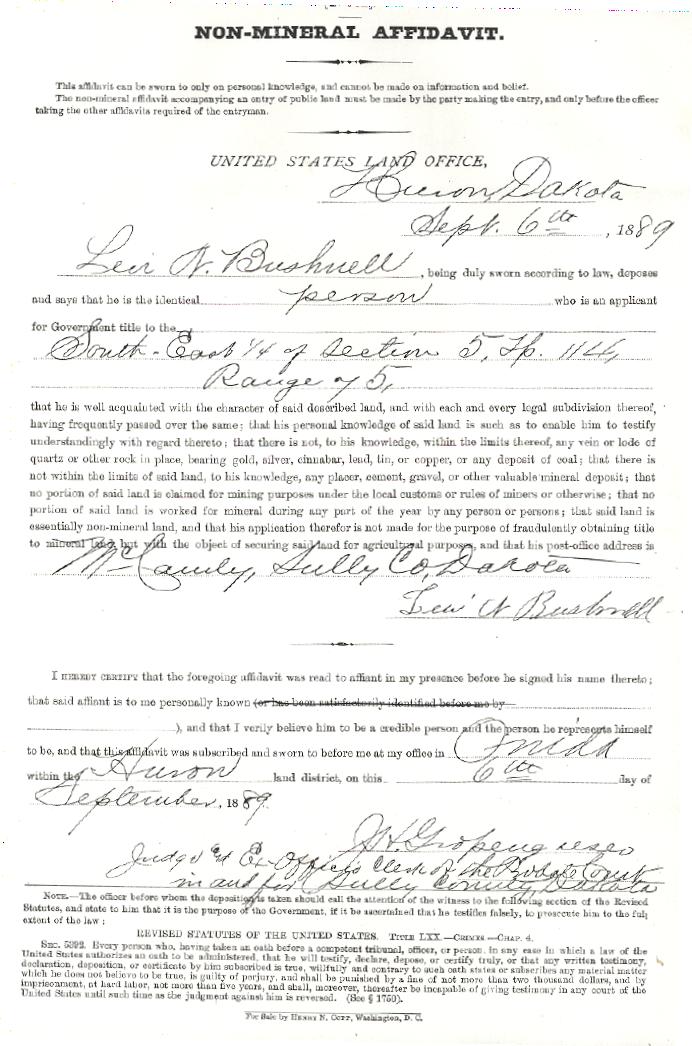 NON-MINERAL AFFIDAVIT.
This affidavit can be sworn to only on personal knowledge, and cannot be made on information and belief.
The non-mineral affidavit accompanying an entry of public land must be made by the party making the entry, and only before the officer
taking the other affidavits required of the entryman.
UNITED STATES LAND OFFICE,
Huron, Dakota
Sept. 6th, 1889
Levi N. Bushnell, being duly sworn according to law, deposes
and says that he is the identical person who is an applicant
for Government title to the
South-East 1/4 of section 5, Tp. 114,
Range 75,
that he is well acquainted with the character of said described land, and with each and every legal subdivision thereof,
having frequently passed over the same; that his personal knowledge of said land is such as to enable him to testify
understandingly with regard thereto; that there is not, to his knowledge, within the limits thereof, any vein or lode of
quartz or other rock in place, bearing gold, silver, cinnabar, lead, tin, or copper, or any deposit of coal; that there is
not within the limits of said land, to his knowledge, any placer, cement, gravel, or other valuable mineral deposit; that
no portion of said land is claimed for mining purposes under the local customs or rules of miners or otherwise; that no
portion of said land is worked for mineral during any part of the year by any person or persons; that said land is
essentially non-mineral land, and that his application therefor is not made for the purpose of fraudulently obtaining title
to mineral land, but with the object of securing said land for agricultural purposes, and that his post-office address is
Sully Co, Dakota
Levi N Bushnell
I HEREBY CERTIFY that the foregoing affidavit was read to affiant in my presence before he signed his name thereto;
that said affiant is to me personally known (or has been satisfactorily identified before me by
), and that I verily believe him to be a credible person and the person he represents himself
to be, and that this affidavit was subscribed and sworn to before me at my office in Onida
within the Huron land district, on this 6th day of
September, 1889.
Judge & Ex-Officio Clerk of the Probate Court
in and for Sully County, Dakota
NOTE.—The officer before whom the deposition is taken should call the attention of the witness to the following section of the Revised
Statutes, and state to him that it is the purpose of the Government, if it be ascertained that he testifies falsely, to prosecute him to the full
extent of the law;
REVISED STATUTES OF THE UNITED STATES. TITLE LXX.—CRIMES—CHAP. 4.
SEC. 5392. Every person who, having taken an oath before a competent tribunal, officer, or person, in any case in which a law of the
United States authorizes an oath to be administered, that he will testify, declare, depose, or certify truly, or that any written testimony,
declaration, deposition, or certificate by him subscribed is true, willfully and contrary to such oath states or subscribes any material matter
which he does not believe to be true, is guilty of perjury, and shall be punished by a fine of not more than two thousand dollars, and by
imprisonment, at hard labor, not more than five years, and shall, moreover, thereafter be incapable of giving testimony in any court of the
United States until such time as the judgment against him is reversed. (See § 1750).
For Sale by HENRY N. COPP, Washington, D. C.